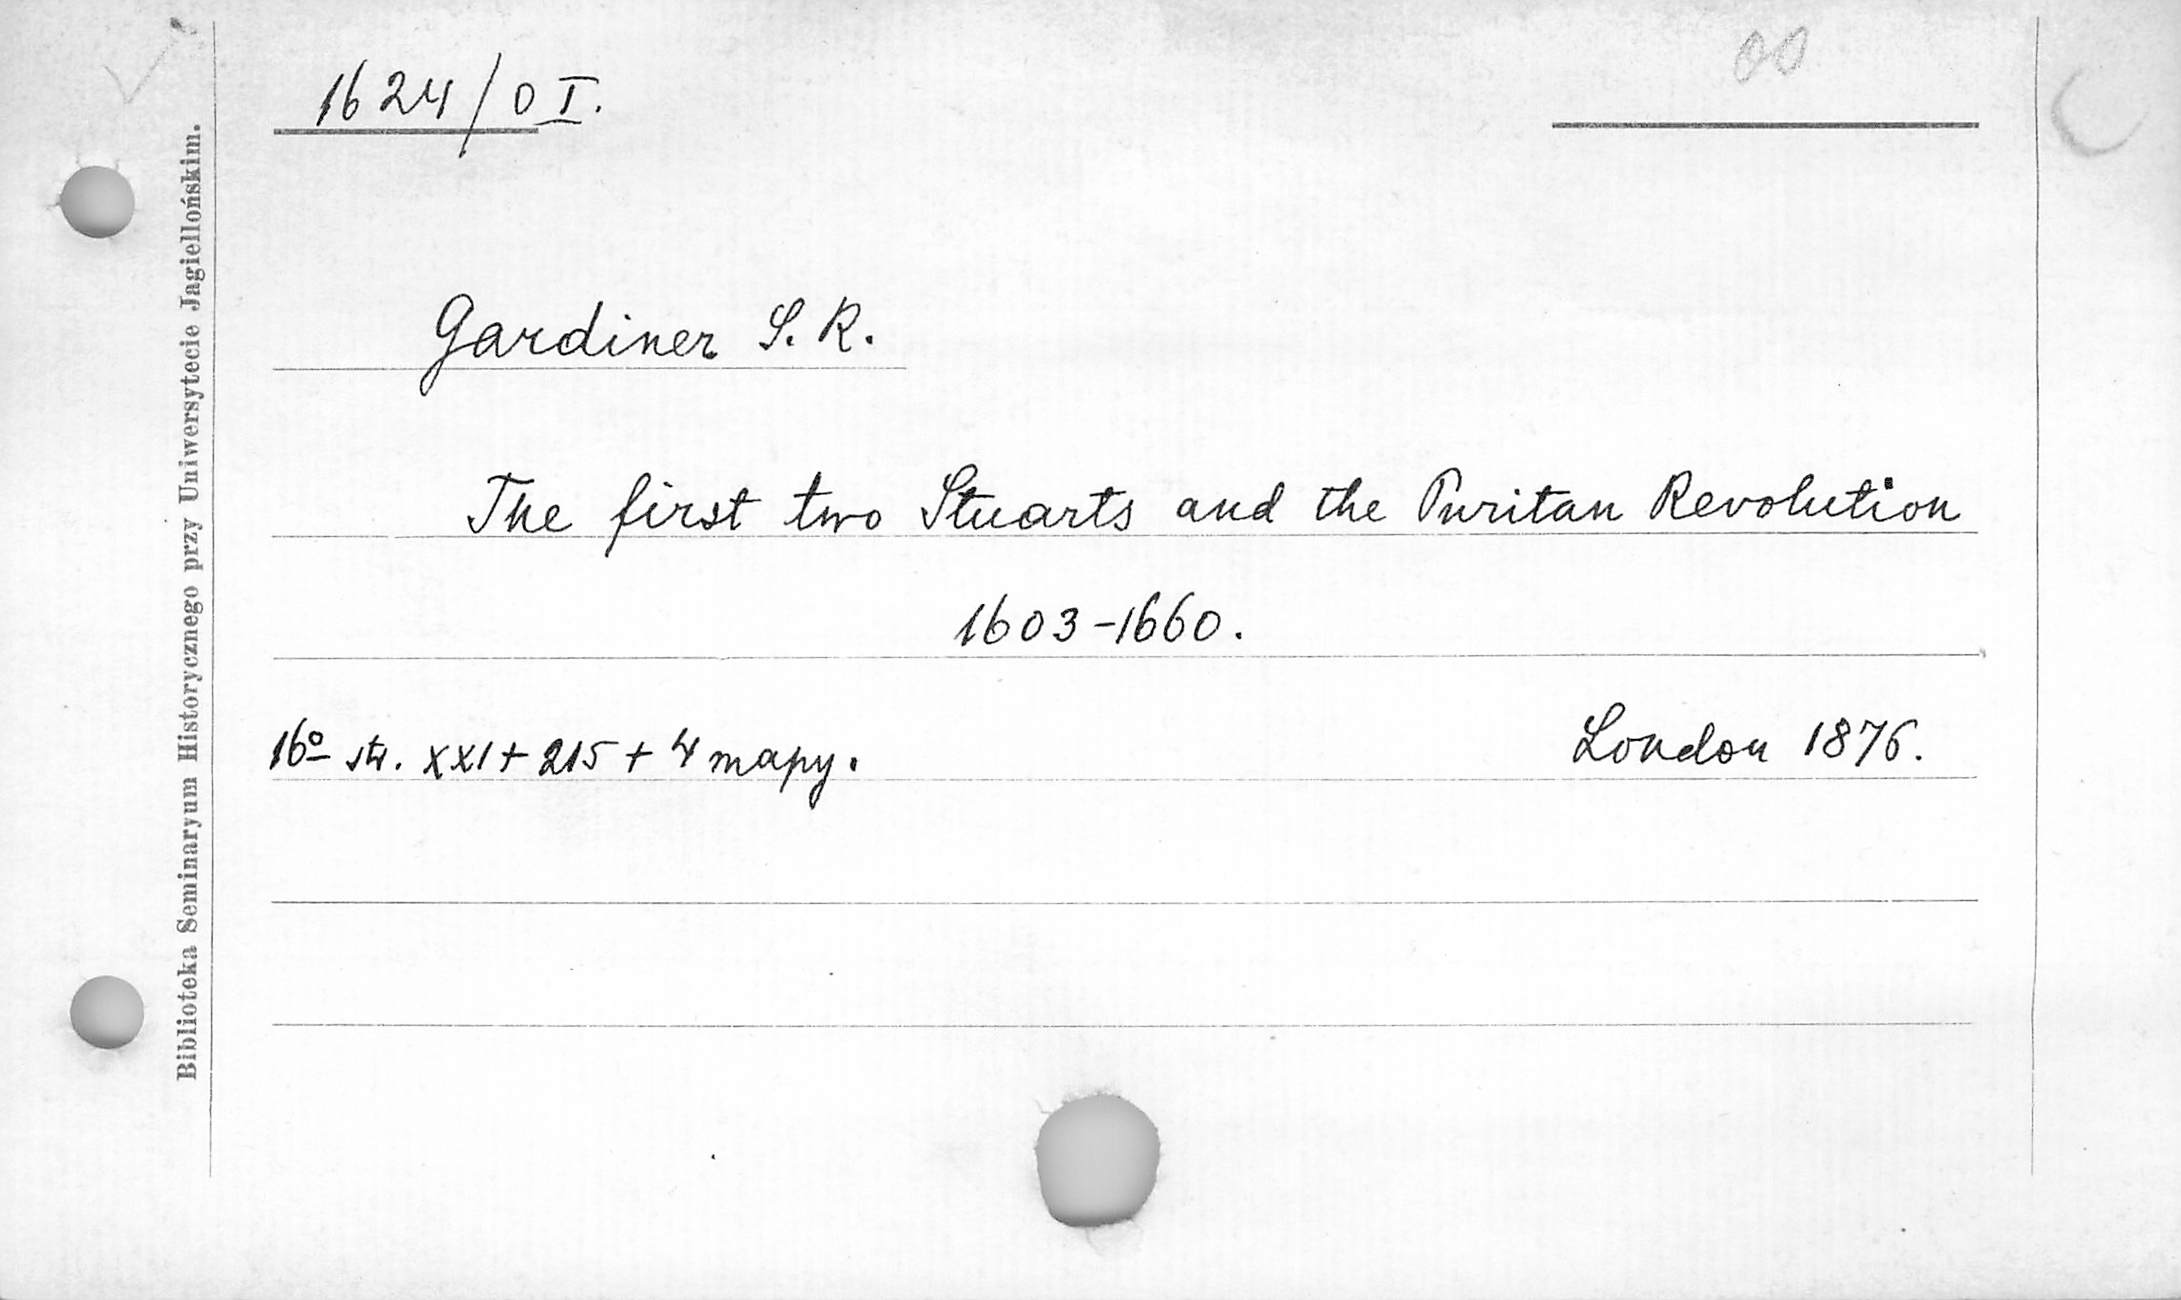 1624/0 I.
00
Gardiner S. R.
The first two Stuarts and the Puritan Revolution
1603-1660.
16º str. XXI + 215 + 4 mapy.
London 1876.
Biblioteka Seminaryum Historycznego przy Uniwersytecie Jagiellońskim.